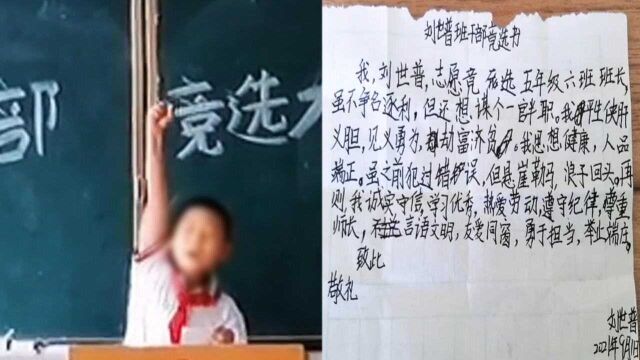 部
竞选大
刘世普班干部竞选书
我,刘世普,志愿竞选五年级六班班长,
虽不争名逐利,但还想谋个一官半职。我平性侠肝
义胆,见义勇为,劫富济贫。我思想健康,人品
端正。虽之前犯过错误,但悬崖勒马,浪子回头。再
则,我诚实守信,学习优秀,热爱劳动,遵守纪律,尊重
师长,言语文明,友爱同窗,勇于担当,举止端庄。
致此
敬礼
刘世普
2021年9月1日